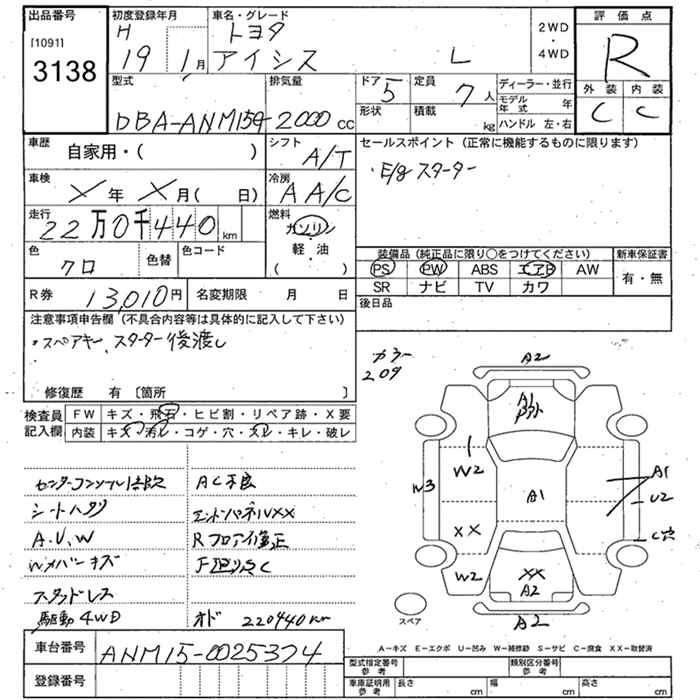 出品番号
[1091]
3138
初度登録年月
H
19 1月
車名・グレード
トヨタ
アイシス L
2WD
・
4WD
評価点
R
外装 内装
C C
型式
DBA-ANM15G
排気量
2000 cc
ドア
5
形状
定員
7人
積載
kg
ディーラー・並行
モデル年式 年
ハンドル 左・右
車歴
自家用・( )
シフト
A/T
セールスポイント (正常に機能するものに限ります)
・E/g スターター
車検
X年 X月( 日)
冷房
A A/C
走行
22万0千440km
燃料
ガソリン
軽・油
( )
色
クロ
色替
色コード
装備品 (純正品に限り○をつけてください)
新車保証書
PS PW ABS エアB AW
有・無
SR ナビ TV カワ
R券
13,010円
名変期限 月 日
後日品
注意事項申告欄 (不具合内容等は具体的に記入して下さい)
・スペアキー、スターター後渡し
修復歴 有 〔箇所 〕
カラー
209
検査員
記入欄
FW キズ・飛石・ヒビ割・リペア跡・X要
内装 キズ・汚レ・コゲ・穴・スレ・キレ・破レ
センターコンソール
シートハゲリ
A.U.W
キズ
スタッドレス
駆動 4WD
AC不良
エンドパネルXX
Rフロア修正
C
オド 220440km
A2
A1
W2
W3
A1
A1
U2
XX
C穴
W2
XX
A2
A2
スペア
A-キズ E-エクボ U-凹み W-補修跡 S-サビ C-腐食 XX-取替済
車台番号
ANM15-0025374
登録番号
型式指定番号
参考
類別区分番号
参考
車庫証明用
参考
長さ cm
幅 cm
高さ cm